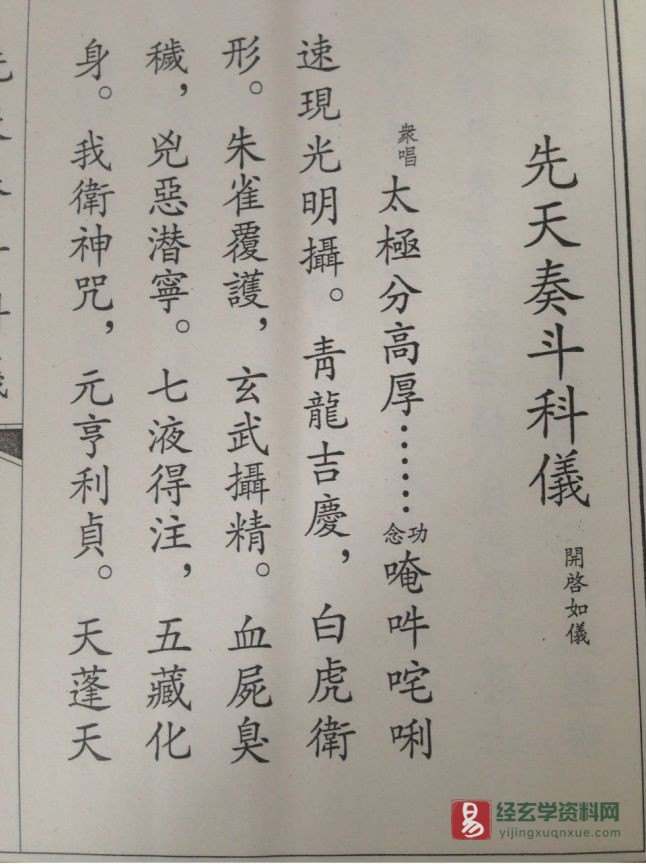 先天奏斗科儀 開啓如儀
衆唱 太極分高厚⋯⋯ 功念 唵吽咤唎
速現光明攝。青龍吉慶，白虎衛
形。朱雀覆護，玄武攝精。血屍臭
穢，兇惡潛寧。七液得注，五藏化
身。我衛神咒，元亨利貞。天蓬天
易
经玄学资料网
yijingxuqnxue.com